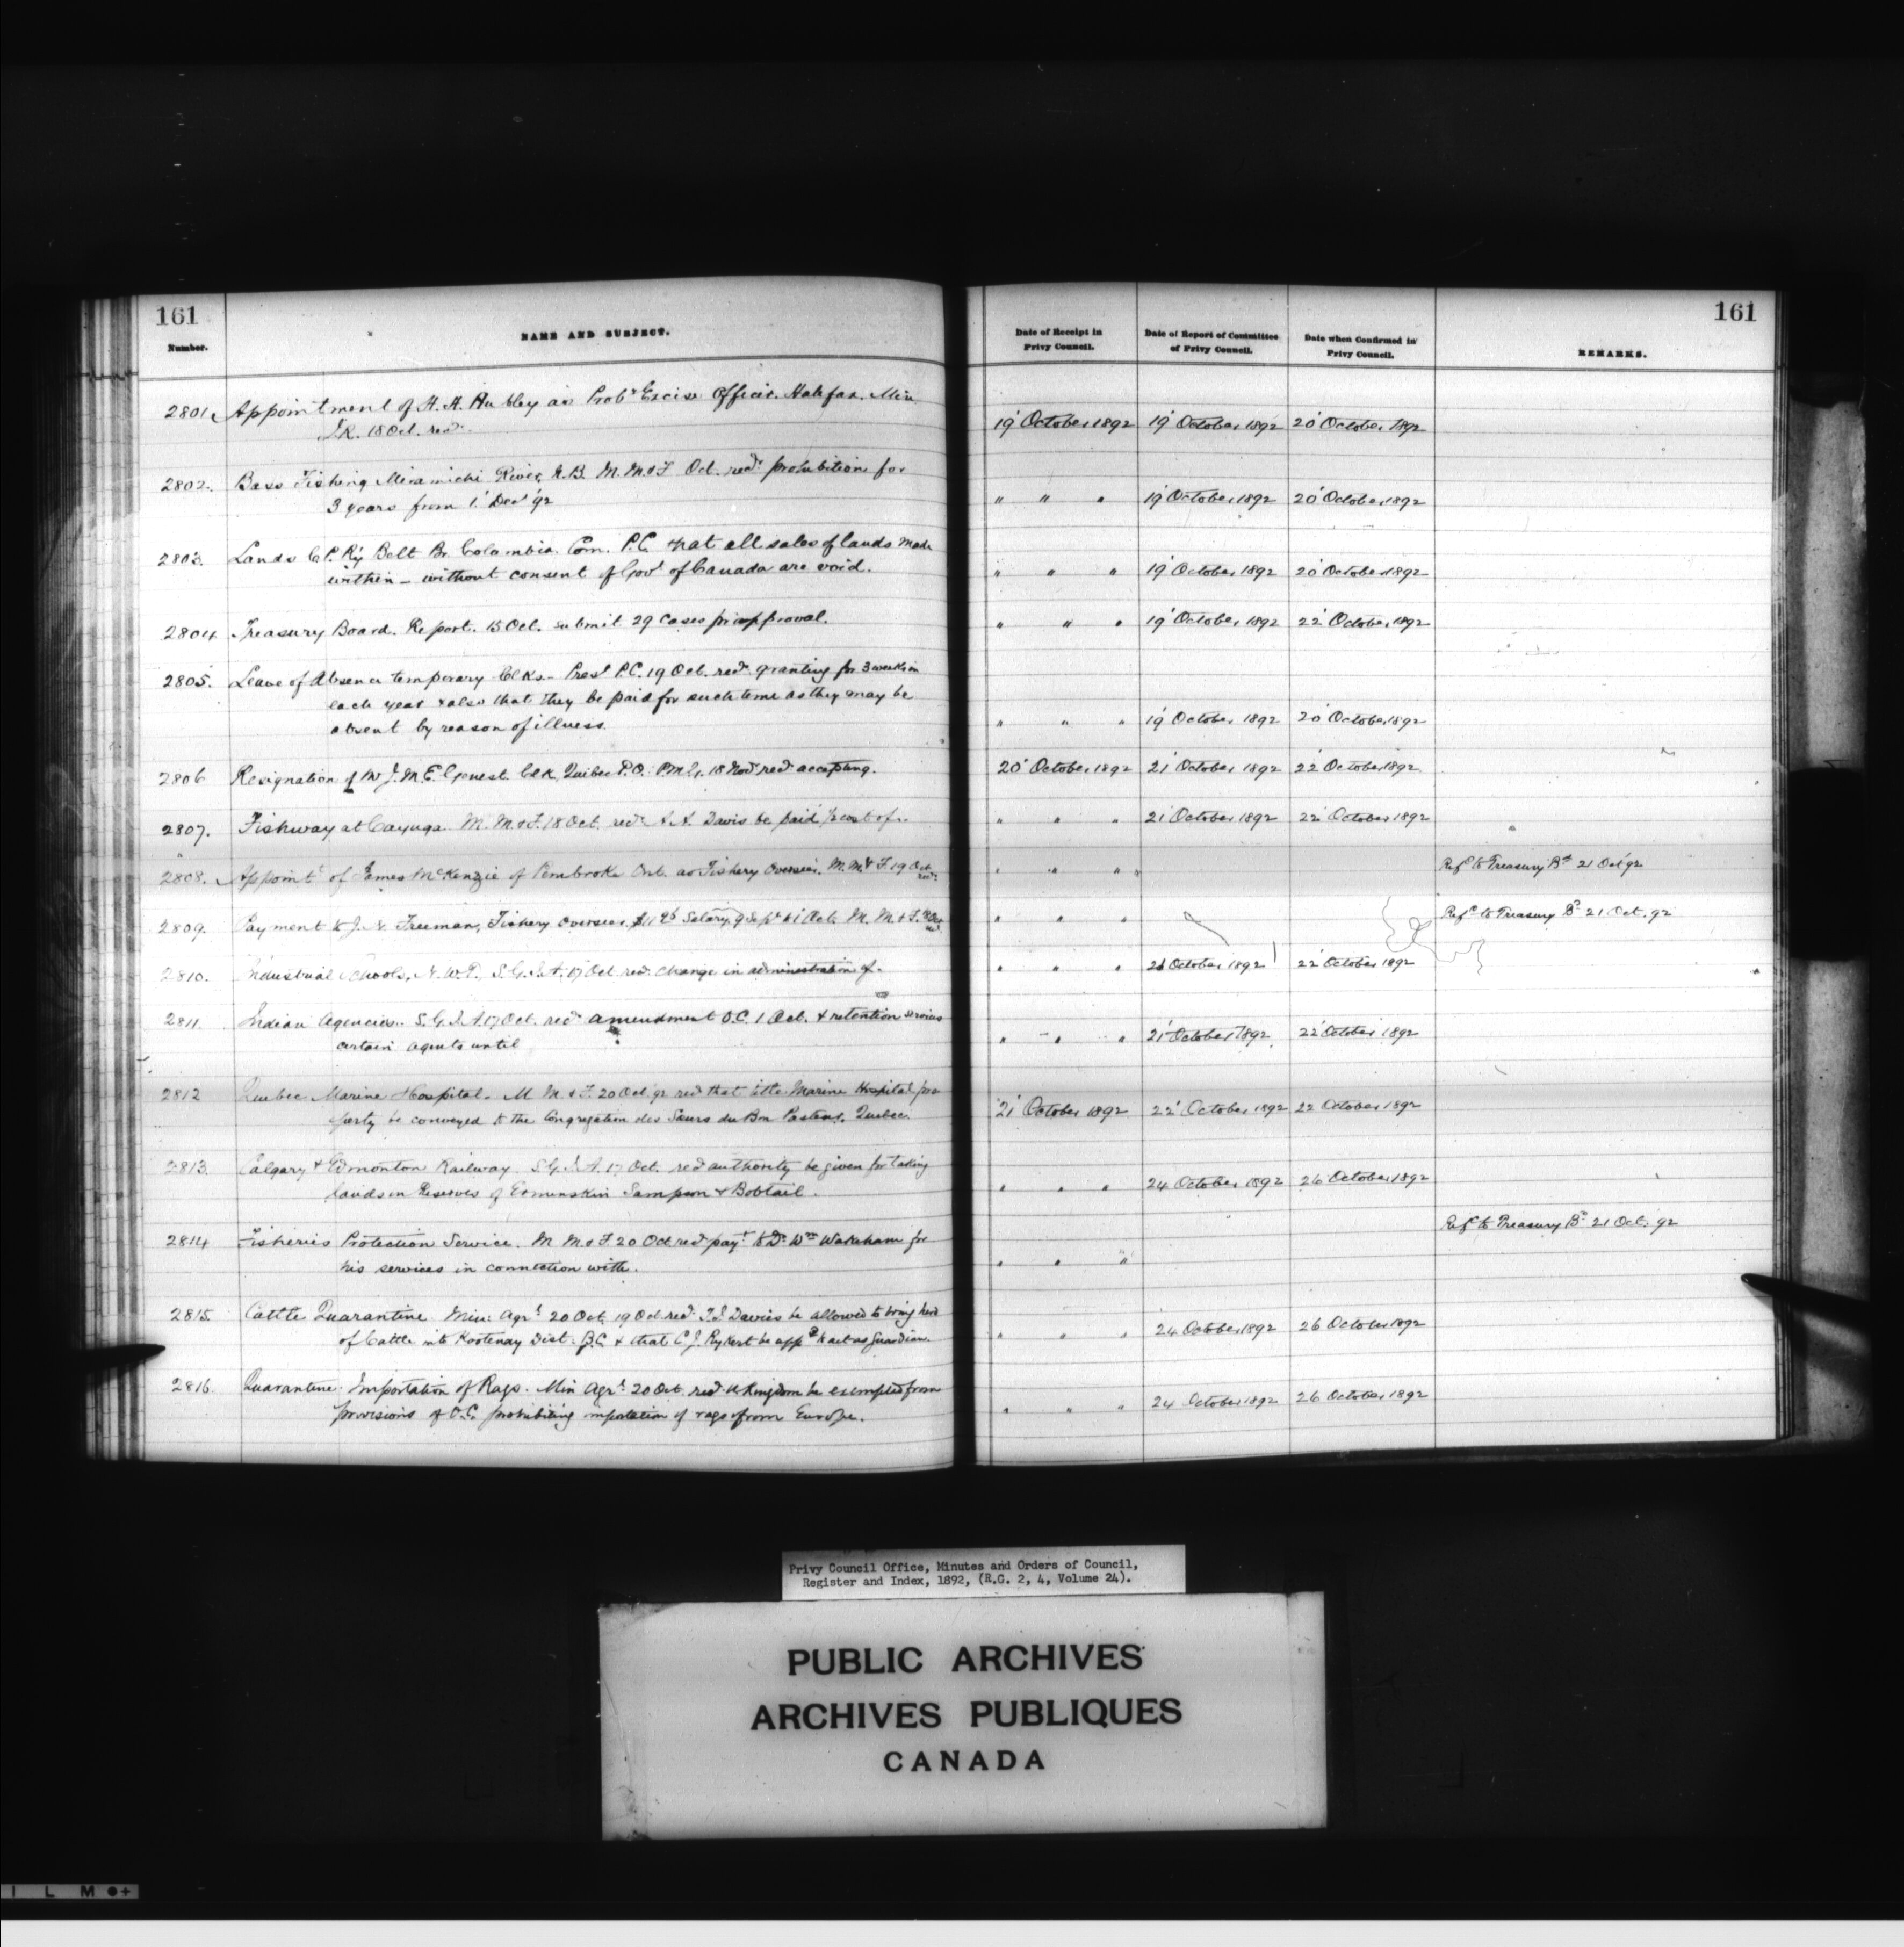 161
Number.
NAME AND SUBJECT.
Date of Receipt in
Privy Council.
Date of Report of Committee
of Privy Council.
Date when Confirmed in
Privy Council.
REMARKS.
161
2801. Appointment of H. H. Hubley as Prob'r Excise Officer. Halifax. Min
I.R. 18 Oct. recd. 19' October 1892 19' October 1892 20' October 1892
2802. Bass Fishing Miramichi River, N.B. M. M. & F Oct. recd. prohibition for
3 years from 1' Decr '92 " " " 19' October 1892 20' October 1892
2803. Lands C.P. Ry Belt Br. Columbia. Com. P.C. that all sales of lands made
within - without consent of Govt of Canada are void. " " " 19' October 1892 20' October 1892
2804 Treasury Board. Report. 15 Oct. submit 29 cases for approval. " " " 19' October 1892 22' October 1892
2805. Leave of Absence temporary Clks - Prest P.C. 19 Oct. recd. granting for 3 weeks in
each year & also that they be paid for such time as they may be
absent by reason of illness. " " " 19' October 1892 20' October 1892
2806 Resignation of Mr J. M. E. Genest Clk, Quebec P.O. P.M.G. 18 recd. accepting. 20' October 1892 21' October 1892 22' October 1892
2807. Fishway at Cayuga. M. M. & F. 18 Oct. recd. A. A. Davis be paid ½ cost of. " " " 21' October 1892 22' October 1892
2808. Appointt of James McKenzie of Pembroke Ont. as Fishery Overseer. M. M. & F. 19 Oct. recd. " " " Refd to Treasury Bd 21 Oct '92
2809. Payment to J. N. Freeman, Fishery Overseer, Salary, 9 Sept to 1 Oct. M. M. & F. " " " Refd to Treasury Bd 21 Oct. 92
2810. Industrial Schools, N.W.T., S.G.I.A. 17 Oct recd. change in administration of. " " " 21 October 1892 22' October 1892
2811. Indian Agencies. S.G.I.A. 17 Oct. recd. amendment O.C. 1 Oct. & retention services
certain agents until " " " 21' October 1892 22' October 1892
2812 Quebec Marine Hospital. M M. & F. 20 Oct 92 recd that title Marine Hospital pro
perty be conveyed to the Congregation des Sœurs du Bon Pasteur, Quebec. 21' October 1892 22' October 1892 22 October 1892
2813. Calgary & Edmonton Railway. S.G.I.A. 17 Oct. recd authority be given for taking
lands in Reserves of Ermenskin Sampson & Bobtail. " " " 24 October 1892 26 October 1892
2814 Fisheries Protection Service. M M. & F 20 Oct recd payt to Dr Wm Wakeham for Refd to Treasury Bd 21 Oct. 92
his services in connection with. " " "
2815. Cattle Quarantine. Min: Agrl 20 Oct. 19 Oct recd. Davies be allowed to bring herd
of Cattle into Kootenay Dist. B.C. & that C. J. Rykert be appd to act as Guardian. " " " 24 October 1892 26 October 1892
2816. Quarantine: Importation of Rags. Min Agrl 20 Oct. recd. U Kingdom be exempted from
provisions of O.C. prohibiting importation of rags from Europe. " " " 24 October 1892 26 October 1892
Privy Council Office, Minutes and Orders of Council,
Register and Index, 1892, (R.G. 2, 4, Volume 24).
PUBLIC ARCHIVES
ARCHIVES PUBLIQUES
CANADA
I L M